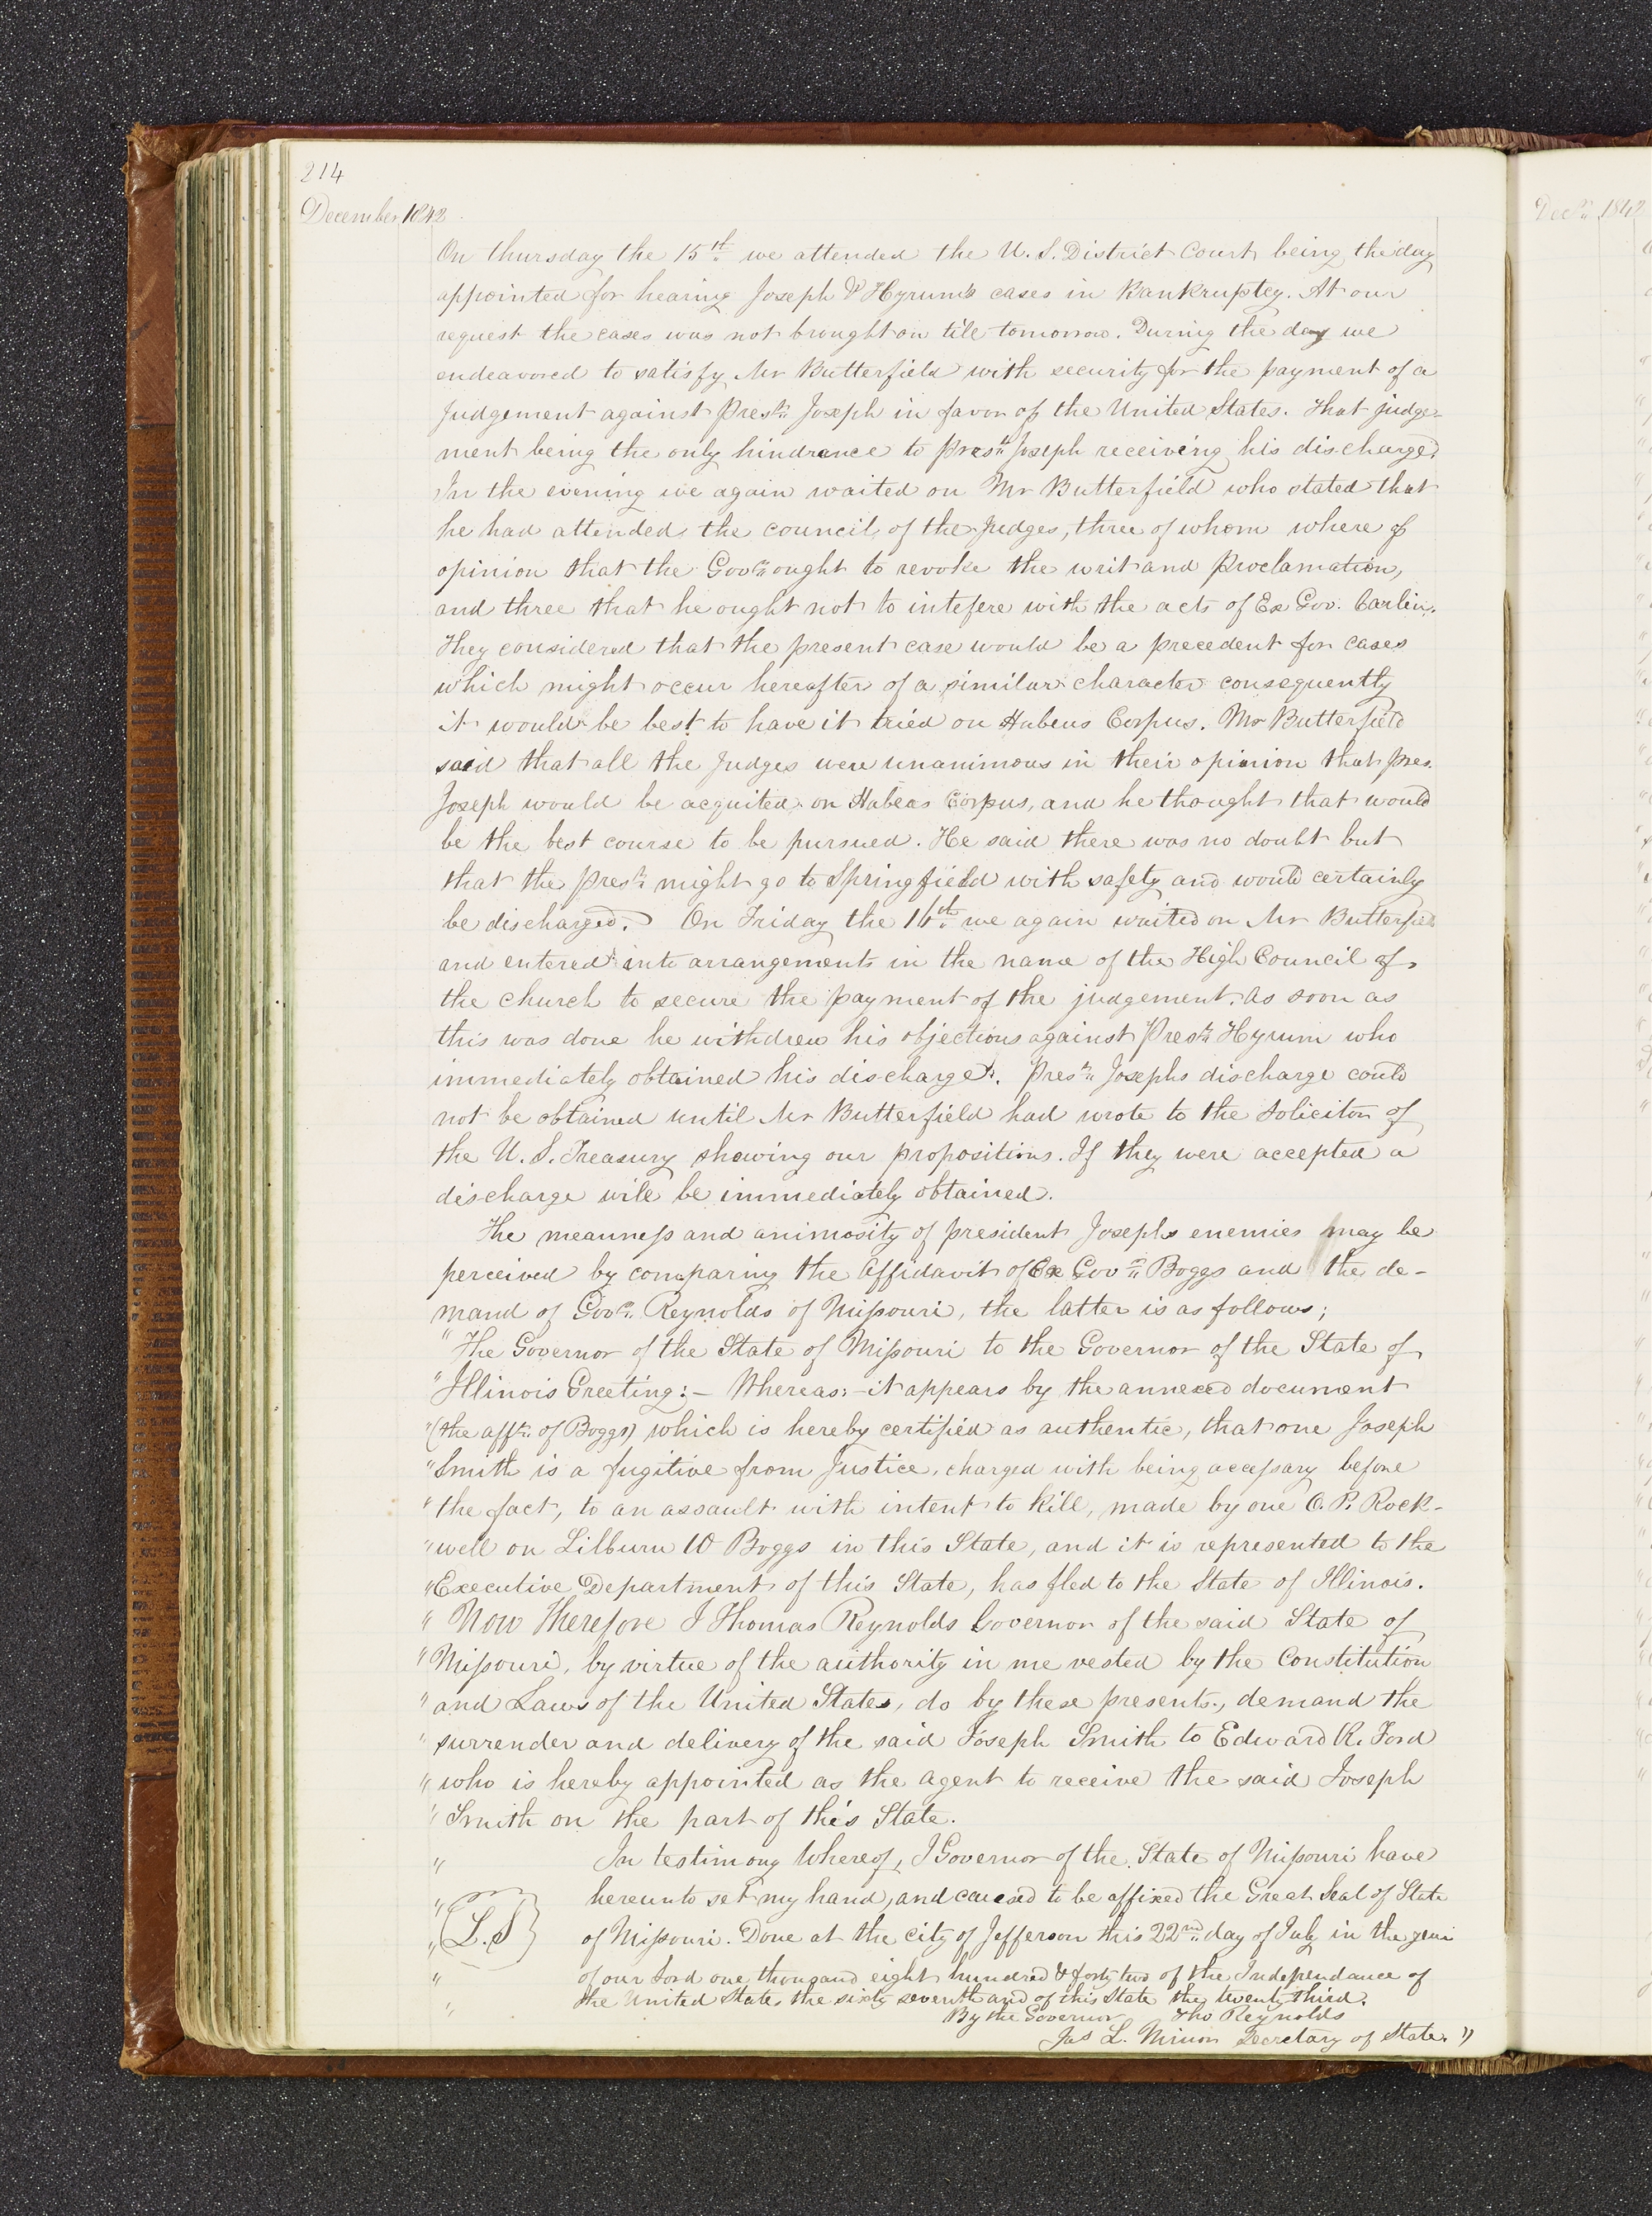 214
December 1842
On thursday the 15th we attended the U. S. District Court being the day
appointed for hearing Joseph & Hyrum's cases in Bankruptcy. At our
request the cases was not brought on till tomorrow. During the day we
endeavored to satisfy Mr Butterfield with security for the payment of a
Judgement against Prest. Joseph in favor of the United States. That judge-
ment being the only hindrance to prest. Joseph receiving his discharge.
In the evening we again waited on Mr Butterfield who stated that
he had attended the council of the Judges, three of whom where of
opinion that the Govr. ought to revoke the writ and Proclamation,
and three that he ought not to intefere with the acts of Ex Gov. Carlin.
They considered that the present case would be a precedent for cases
which might occur hereafter of a similar character consequently
it would be best to have it tried on Habeus Corpus. Mr Butterfield
said that all the Judges were unanimous in their opinion that pres.
Joseph would be acquited on Habeas Corpus, and he thought that would
be the best course to be pursued. He said there was no doubt but
that the prest. might go to Springfield with safety and would certainly
be discharged. On Friday the 16th. we again waited on Mr Butterfield
and entered into arrangements in the name of the High Council of
the church to secure the payment of the judgement. As soon as
this was done he withdrew his objections against Prest. Hyrum who
immediately obtained his discharge. Prest. Josephs discharge could
not be obtained until Mr Butterfield had wrote to the Soliciton of
the U. S. Treasury showing our propositions. If they were accepted a
discharge will be immediately obtained.
The meanness and animosity of president Josephs enemies may be
perceived by comparing the Affidavit of Ex Govr. Boggs and the de-
mand of Govr. Reynolds of Missouri, the latter is as follows;
"The Governor of the State of Missouri to the Governor of the State of
"Illinois Greeting:— Whereas:— it appears by the annexed document
"(the afft. of Boggs) which is hereby certified as authentic, that one Joseph
"Smith is a fugitive from Justice, charged with being accessary before
"the fact, to an assault with intent to kill, made by one O. P. Rock-
"well on Lilburn W Boggs in this State, and it is represented to the
"Executive Department of this State, has fled to the State of Illinois.
" Now Therefore I Thomas Reynolds Governor of the said State of
"Missouri, by virtue of the authority in me vested by the Constitution
"and Laws of the United States, do by these presents, demand the
"surrender and delivery of the said Joseph Smith to Edward R. Ford
"who is hereby appointed as the agent to receive the said Joseph
"Smith on the part of this State.
" In testimony Whereof, I Governor of the State of Missouri have
" hereunto set my hand, and caused to be affixed the Great Seal of State
" (L.S) of Missouri. Done at the city of Jefferson this 22nd. day of July in the year
" of our Lord one thousand eight hundred & forty two of the Independance of
" the United States the sixty seventh and of this State the twenty third.
By the Governor Tho Reynolds
Jas L. Minon Secretary of State."
Decr. 1842